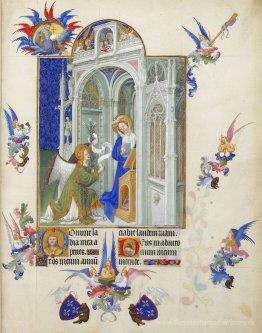 Domine la
bia mea a
peries.
os meum annū
ciabit laudem tuam.
Deus in adiuto
rium meum
intende.